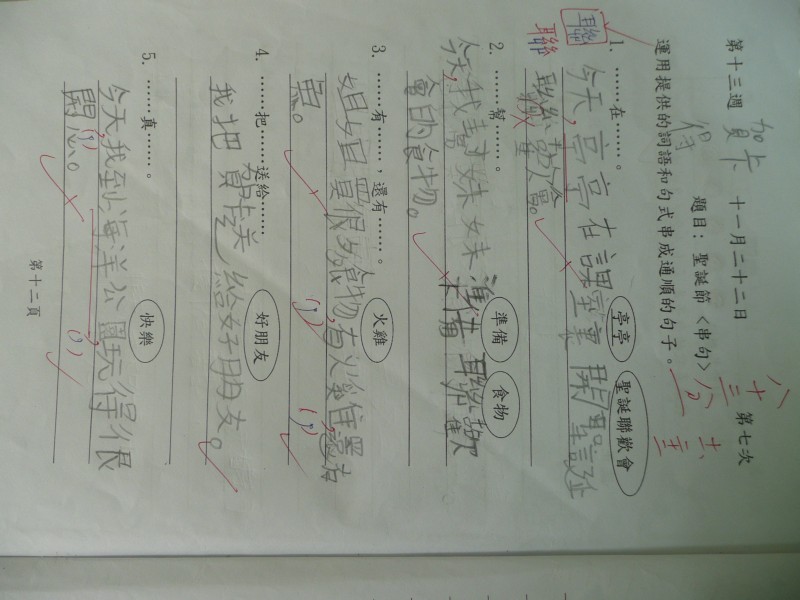 第十三週 十一月二十二日 第七次
賀卡
得
題目：聖誕節〈串句〉
八十三分
運用提供的詞語和句式串成通順的句子。
聯
聯
1. ……在……。 亭亭 聖誕聯歡會
今天,亭亭在課室裏開聖誕
聯歡會。
2. ……幫……。 準備 食物
今天,我幫妹妹準備聯歡
會的食物。
3. ……有……，還有……。 火雞
姐姐買很多食物,有火雞,還有
魚。
4. ……把……送給…… 好朋友
我把賀卡送給好朋友。
5. ……真……。 快樂
今天,我到海洋公園玩得很
開心。
第十二頁